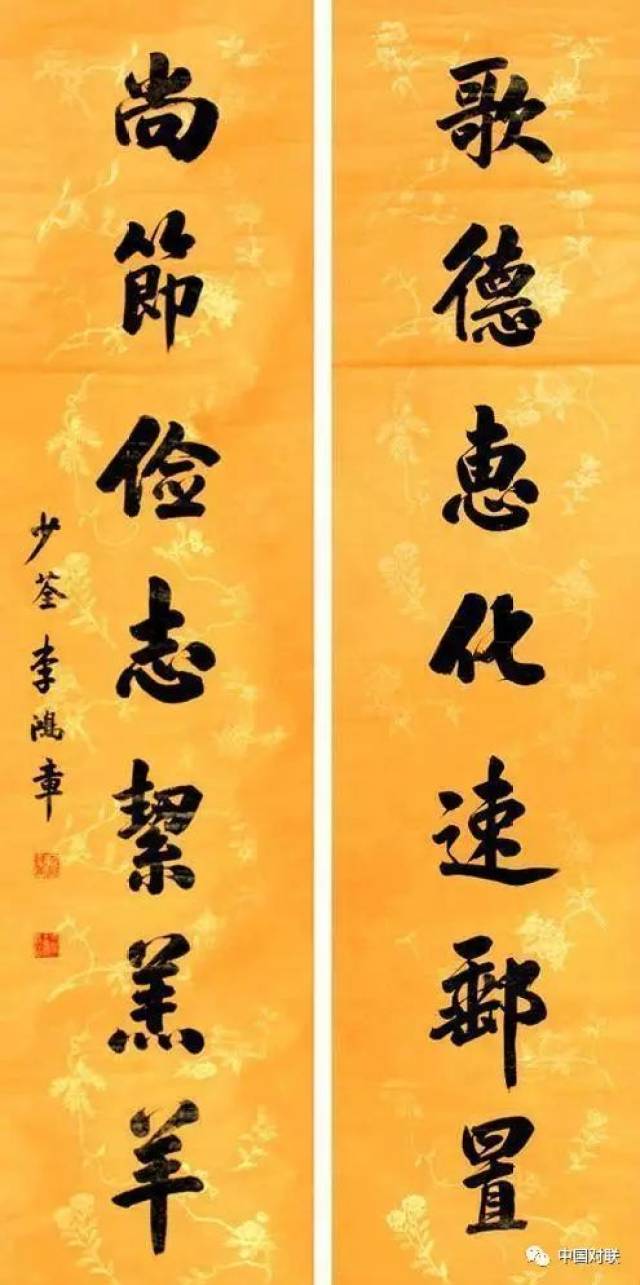 歌德惠化速郵置
尚節儉志絜羔羊
少荃李鴻章
中国对联